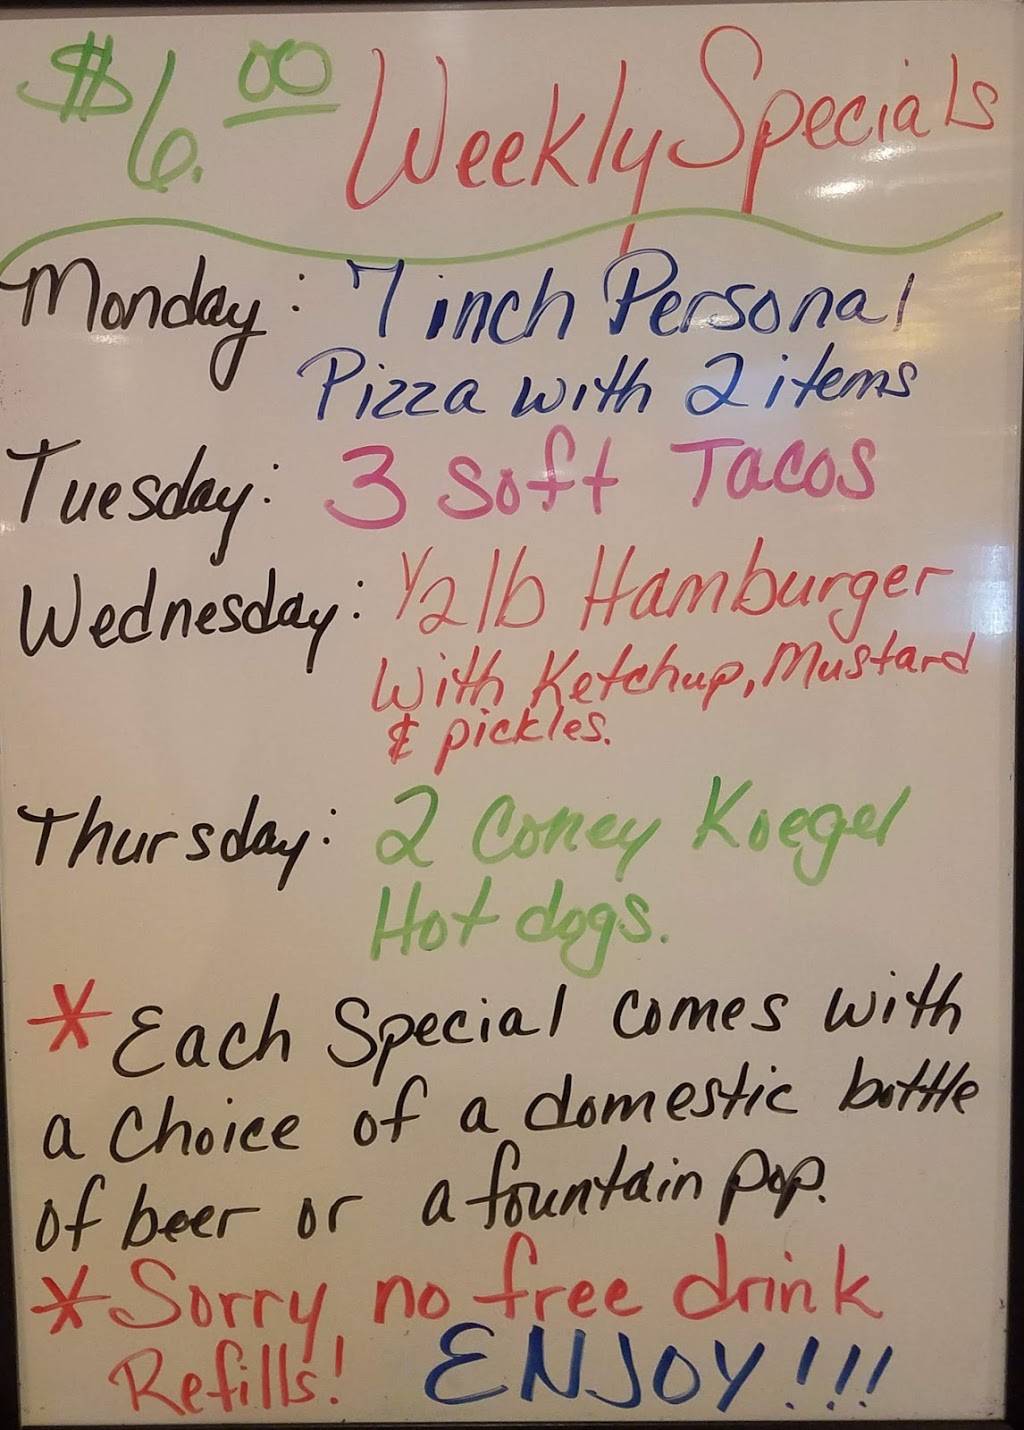 $6.00 Weekly Specials
Monday: 7 inch Personal
Pizza with 2 items
Tuesday: 3 Soft Tacos
Wednesday: 1/2 lb Hamburger
With Ketchup, Mustard
& pickles.
Thursday: 2 Coney Koegel
Hot dogs.
* Each Special comes with
a choice of a domestic bottle
of beer or a fountain pop.
* Sorry no free drink
Refills! ENJOY!!!